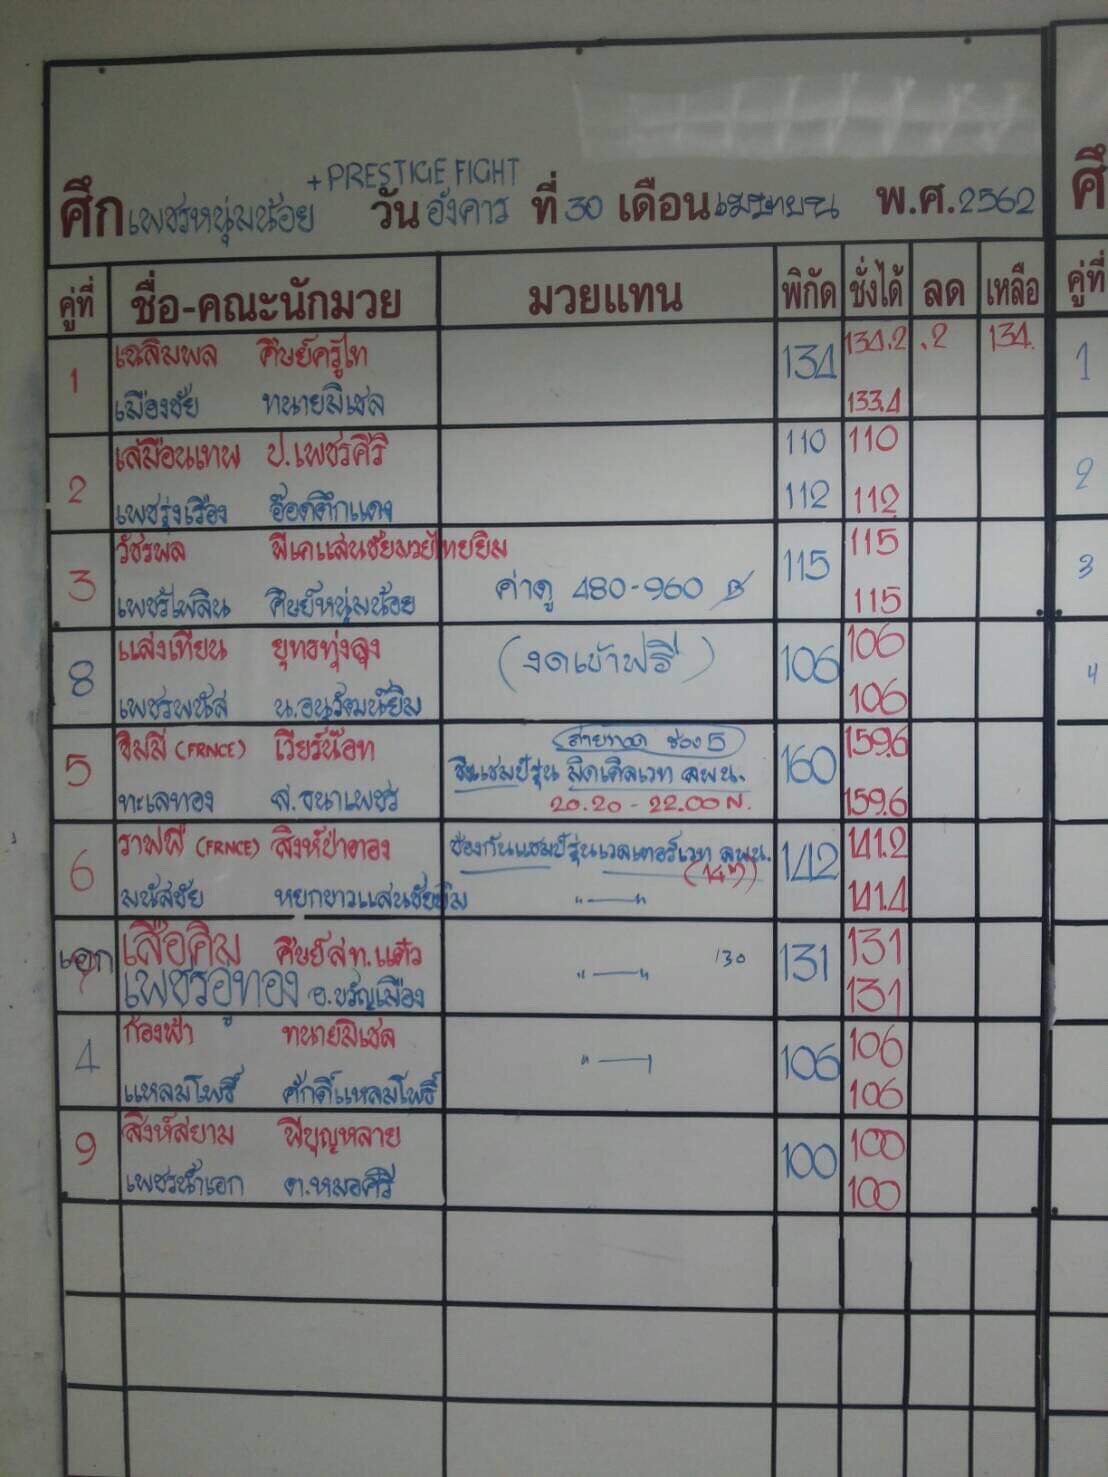 + PRESTIGE FIGHT
ศึกเพชรหนุ่มน้อย วันอังคาร ที่ 30 เดือนเมษายน พ.ศ.2562 ศึ
คู่ที่ ชื่อ-คณะนักมวย มวยแทน พิกัด ชั่งได้ ลด เหลือ คู่ที่
1 เฉลิมพล ศิษย์ครูไก่ 134 134.2 .2 134. 1
เมืองชัย ทนายมิเชล 133.4
2 เสมือนเทพ ป.เพชรศิริ 110 110 2
เพชรรุ่งเรือง อ๊อดตึกแดง 112 112
3 วัชรพล พีเคแสนชัยมวยไทยยิม 115 115 3
เพชรไพลิน ศิษย์หนุ่มน้อย ค่าดู 480-960 ฿ 115
8 แสงเทียน ยุทธทุ่งลุง (งดเข้าฟรี) 106 106 4
เพชรพนัส น.อนุวัฒน์ยิม 106
5 จิมมี่ (FRNCE) เวียร์น็อท ถ่ายทอด ช่อง 5 160 159.6
ชิงแชมป์รุ่น มิดเดิลเวท ลพน.
ทะเลทอง ส.ธนาเพชร 20.20 - 22.00 น. 159.6
6 ราฟฟี่ (FRNCE) สิงห์ป่าตอง ป้องกันแชมป์รุ่นเวลเตอร์เวท ลพน. 142 141.2
มนัสชัย หยกขาวแสนชัยยิม " — " 141.4
เอก เสือคิม ศิษย์สท.แต๋ว " — " 130 131 131
เพชรอู่ทอง อ.ขวัญเมือง 131
4 ก้องฟ้า ทนายมิเชล " — 106 106
แหลมโพธิ์ ศักดิ์แหลมโพธิ์ 106
9 สิงห์สยาม พีบุญหลาย 100 100
เพชรน้ำเอก ต.หมอศรี 100